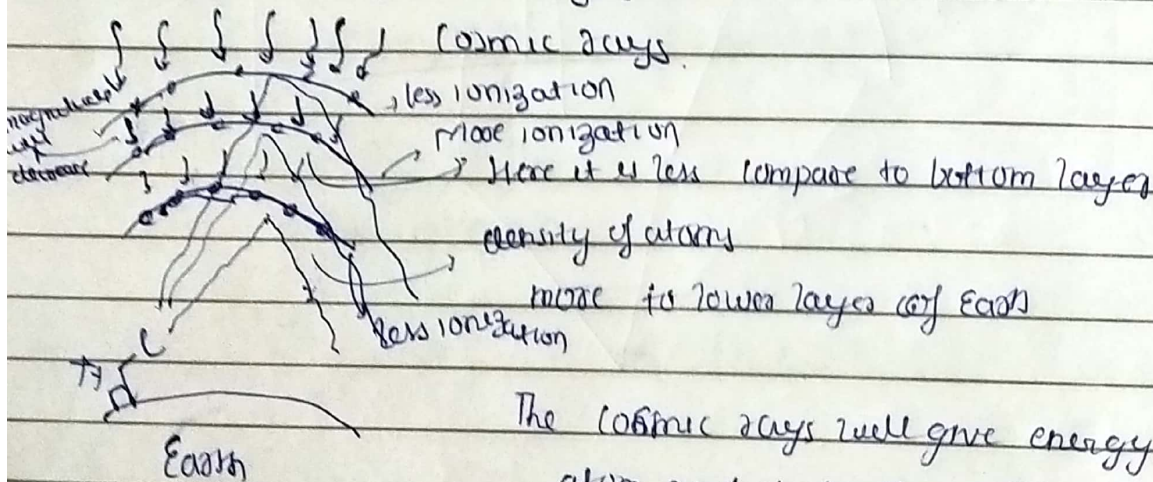 Cosmic rays.
less ionization
More ionization
Here it is less compare to bottom layer
decrease
density of atoms
more to lower layer of Earth
less ionization
Tx
The cosmic rays will give energy
Earth